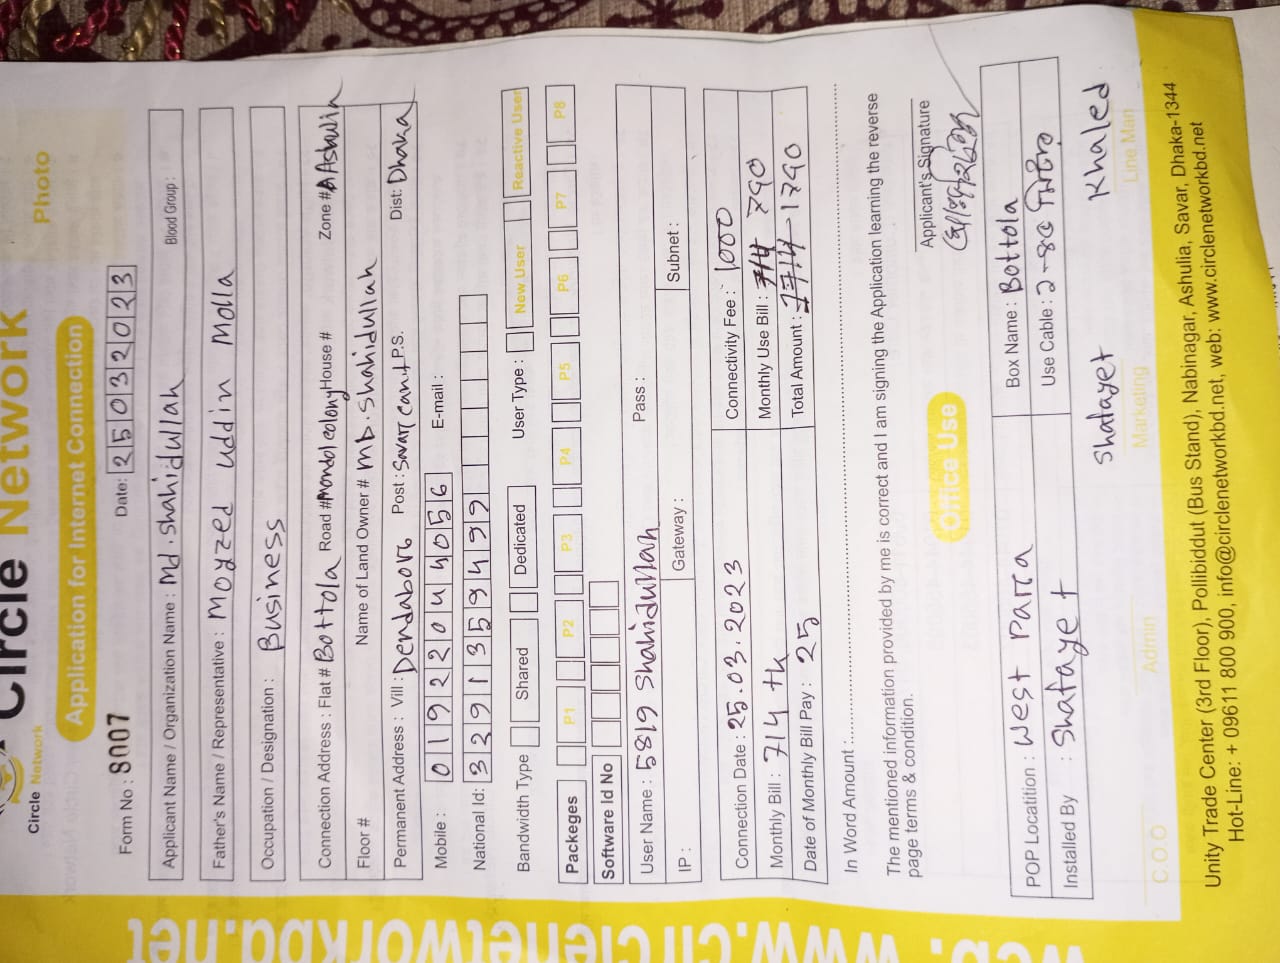 Circle Network
Circle Network
Photo
Application for Internet Connection
Form No : 8007 Date: 25032023
Applicant Name / Organization Name : Md. Shahidullah Blood Group :
Father's Name / Representative : Moyzed uddin Molla
Occupation / Designation : Business
Connection Address : Flat # Bottola Road # Mondol colony House # Zone #
Floor # Name of Land Owner # MD. Shahidullah
Permanent Address : Vill : Dendabor Post : Savar Cant P.S. Dist: Dhaka
Mobile : 01922044056 E-mail :
National Id: 3291359499
Bandwidth Type Shared Dedicated User Type : New User Reactive User
Packeges P1 P2 P3 P4 P5 P6 P7 P8
Software Id No
User Name : 5819 Shahidullah Pass :
IP : Gateway : Subnet :
Connection Date : 25.03.2023 Connectivity Fee : 1000
Monthly Bill : 714 tk Monthly Use Bill : 714 790
Date of Monthly Bill Pay : 25 Total Amount : 1714 1790
In Word Amount :
The mentioned information provided by me is correct and I am signing the Application learning the reverse
page terms & condition.
Applicant's Signature
Office Use
POP Locatition : West Parra Box Name : Bottola
Installed By : Shafayet Use Cable : ২-৪৫ মিটার
Shafayet Khaled
C.O.O Admin Marketing Line Man
Unity Trade Center (3rd Floor), Pollibiddut (Bus Stand), Nabinagar, Ashulia, Savar, Dhaka-1344
Hot-Line: + 09611 800 900, info@circlenetworkbd.net, web: www.circlenetworkbd.net
web: www.circlenetworkbd.net